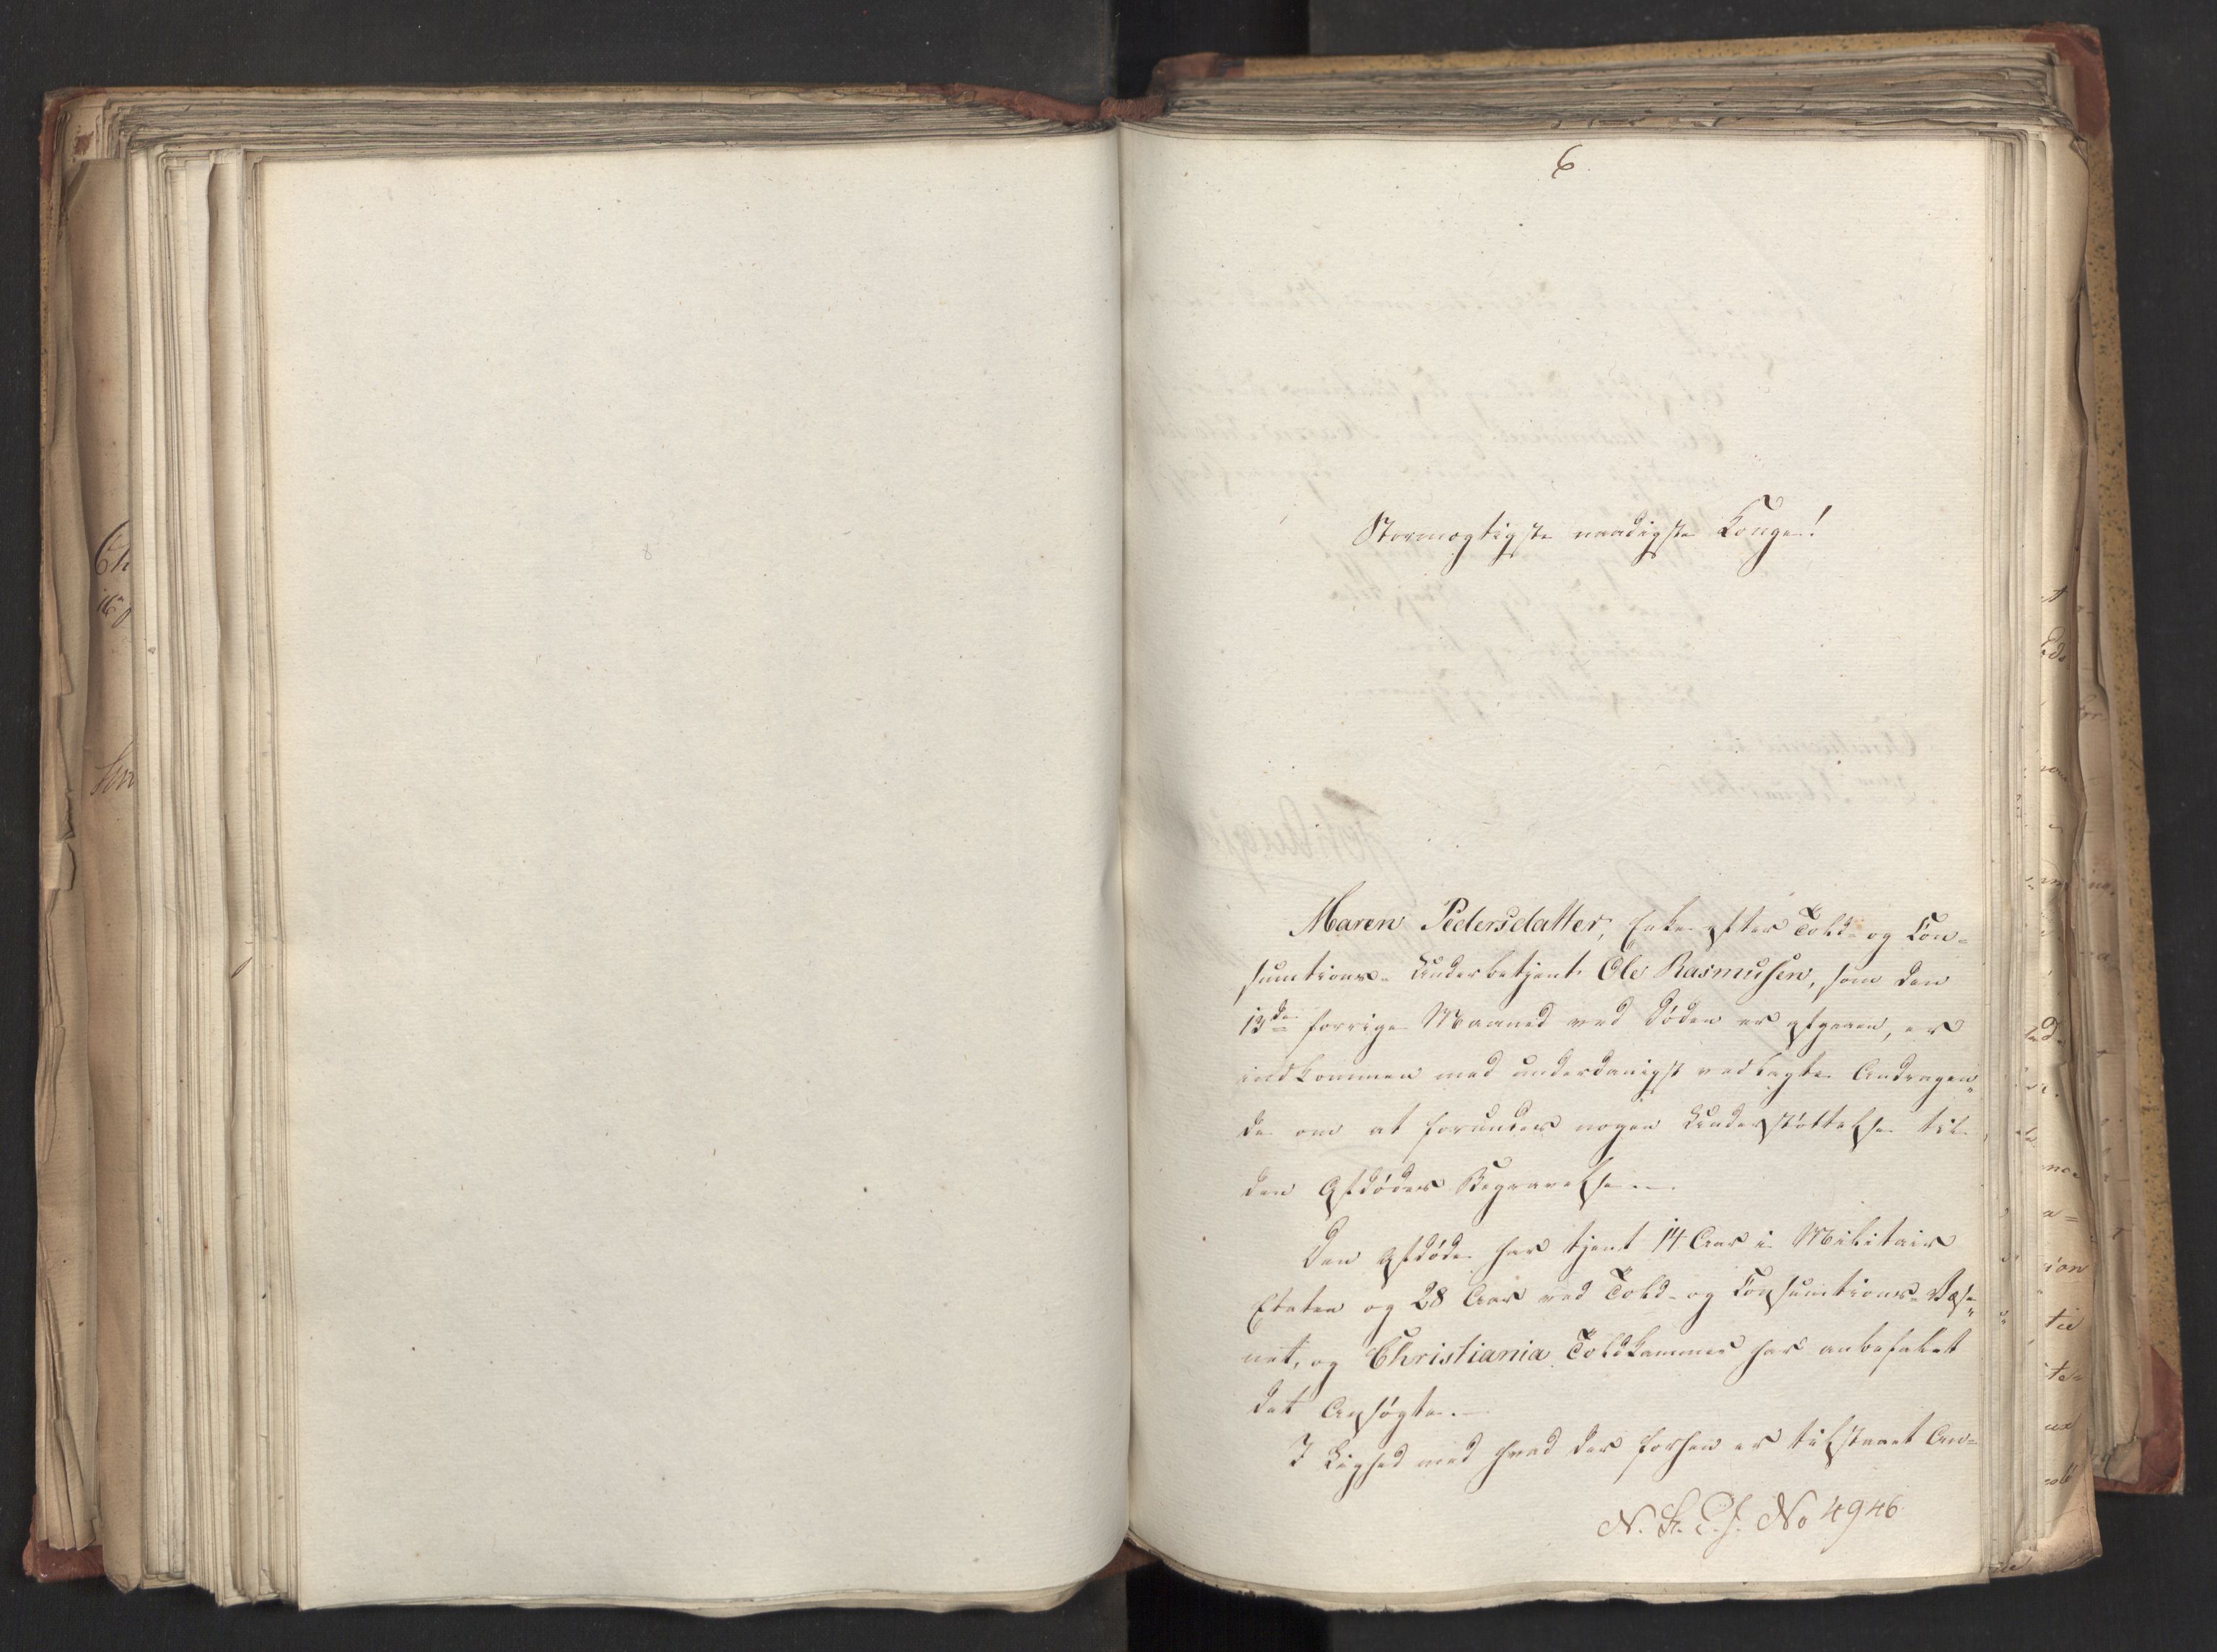 6.
Stormægtigste naadigste Konge!
Maren Pedersdatter, Enke efter Told- og Con-
sumtions-Underbetjent Ole Rasmussen, som den
13de forrige Maaned ved Døden er afgaaen, er
indkommen med underdanigst vedlagte Andragen-
de om at forundes nogen Understøttelse til
den Afdødes Begravelse.
Den Afdøde har tjent 14 Aar i Militair
Etaten og 28 Aar ved Told- og Consumtions-Væse-
net, og Christiania Toldkammer har anbefalet
det Ansøgte.
I Lighed med hvad der forhen er tilstaaet An-
N. St. E. J. No 4946